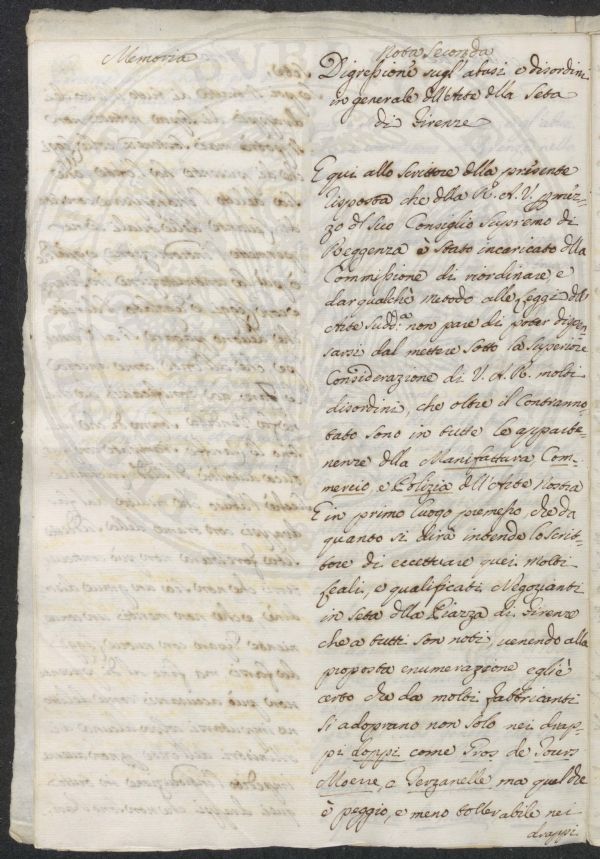 Memoria
Nota Seconda
Digressione sugl'abusi e disordini
in generale dell'Arte della Seta
di Firenze
E qui allo scrittore della presente
risposta che dalla R. A. V. p mez-
zo del suo Consiglio Supremo di
Reggenza è stato incaricato della
Commissione di riordinare e
dar qualche metodo alle leggi dell'
Arte sudd.a non pare di poter dispen
sarsi dal mettere sotto la superiore
Considerazione di V. A. R. molti
disordini, che oltre il Contranno-
tato sono in tutte le apparte-
nenze della Manifattura Com-
mercio, e Polizia dell'Arte nostra
E in primo luogo premesso che da
quanto si dirà intende lo scrit-
tore di eccettuare quei molti
leali, e qualificati Negozianti
in seta della Piazza di Firenze
che a tutti son noti, venendo alla
proposta enumerazione egli è
certo che da molti fabbricanti
si adoprano non solo nei drap-
pi doppi come Gros de Tours
Moerre, e Terzanelle, ma quel che
è peggio, e meno tollerabile nei
drappi